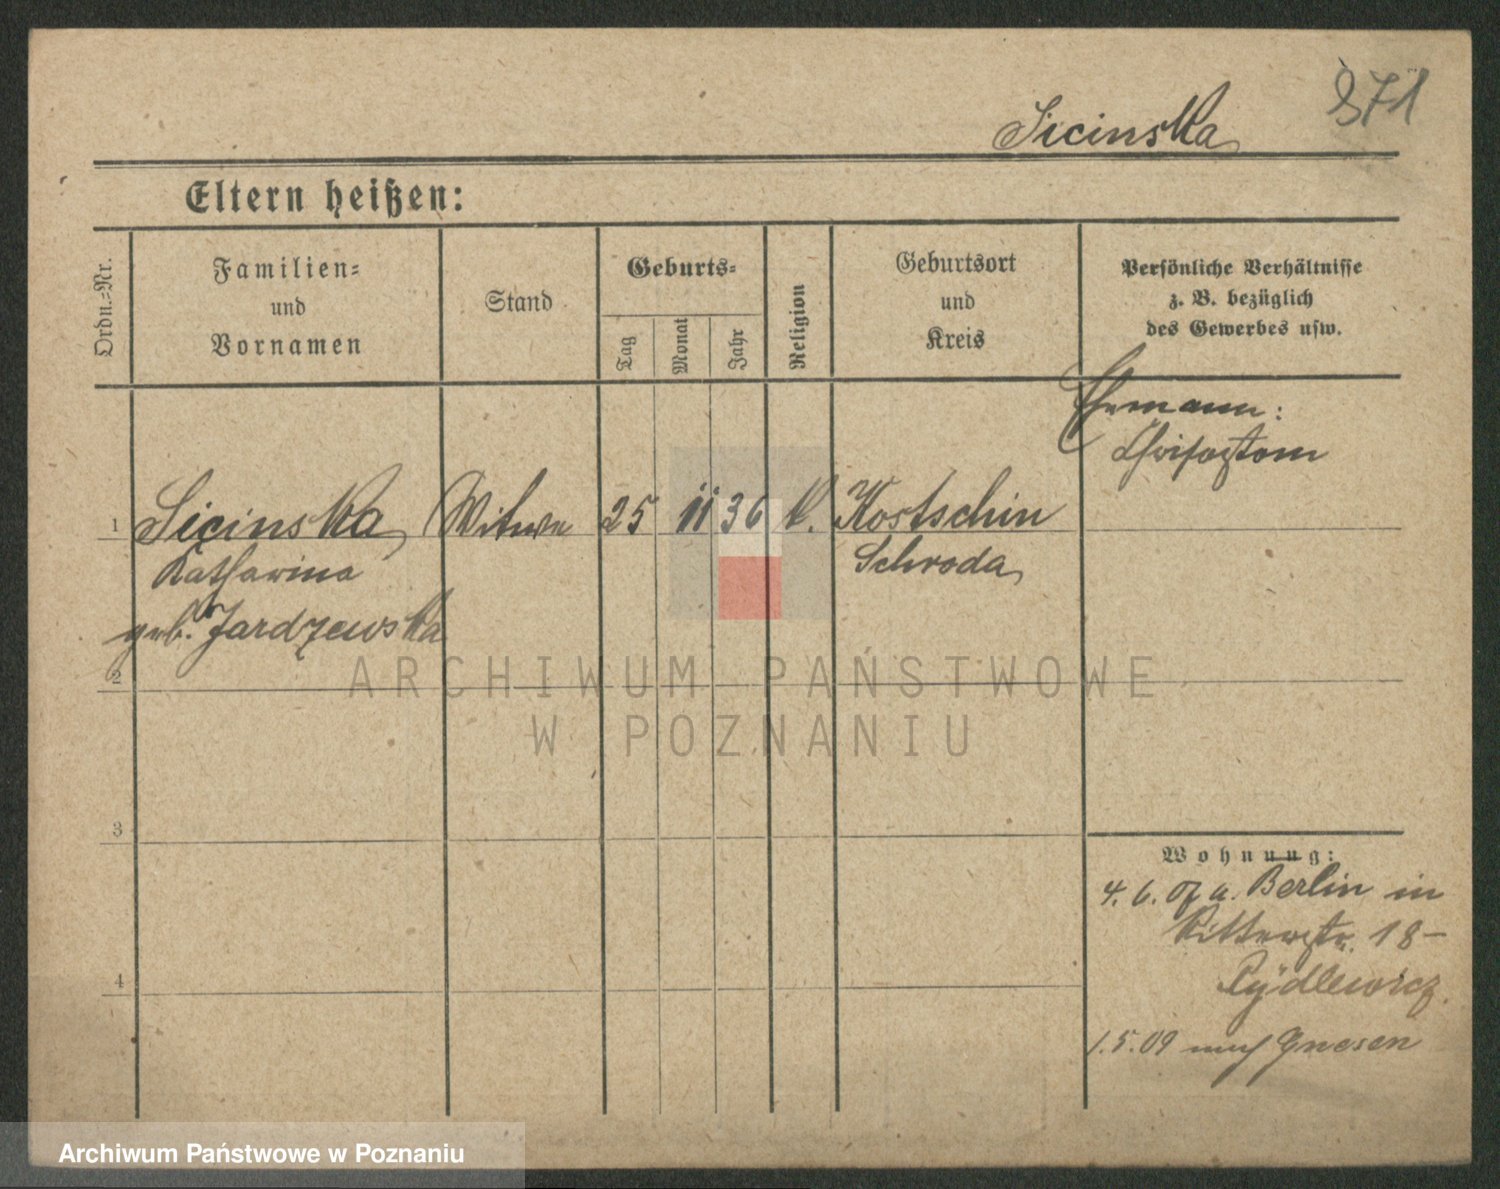 871
Sicinska
Eltern heißen:
Ordn.-Nr.
Familien-
und
Vornamen
Stand
Geburts-
Tag
Monat
Jahr
Religion
Geburtsort
und
Kreis
Persönliche Verhältnisse
z. B. bezüglich
des Gewerbes usw.
Ehemann:
Chrisoztom
1 Sicinska Witwe 25 11 36 k. Kostschin
Katharina Schroda
geb. Jardzewska
2
ARCHIWUM PAŃSTWOWE
W POZNANIU
3
Wohnung:
4. 6. 07 a. Berlin in
Ritterstr. 18-
Rydlewicz.
4
1.5.09 nach Gnesen
Archiwum Państwowe w Poznaniu